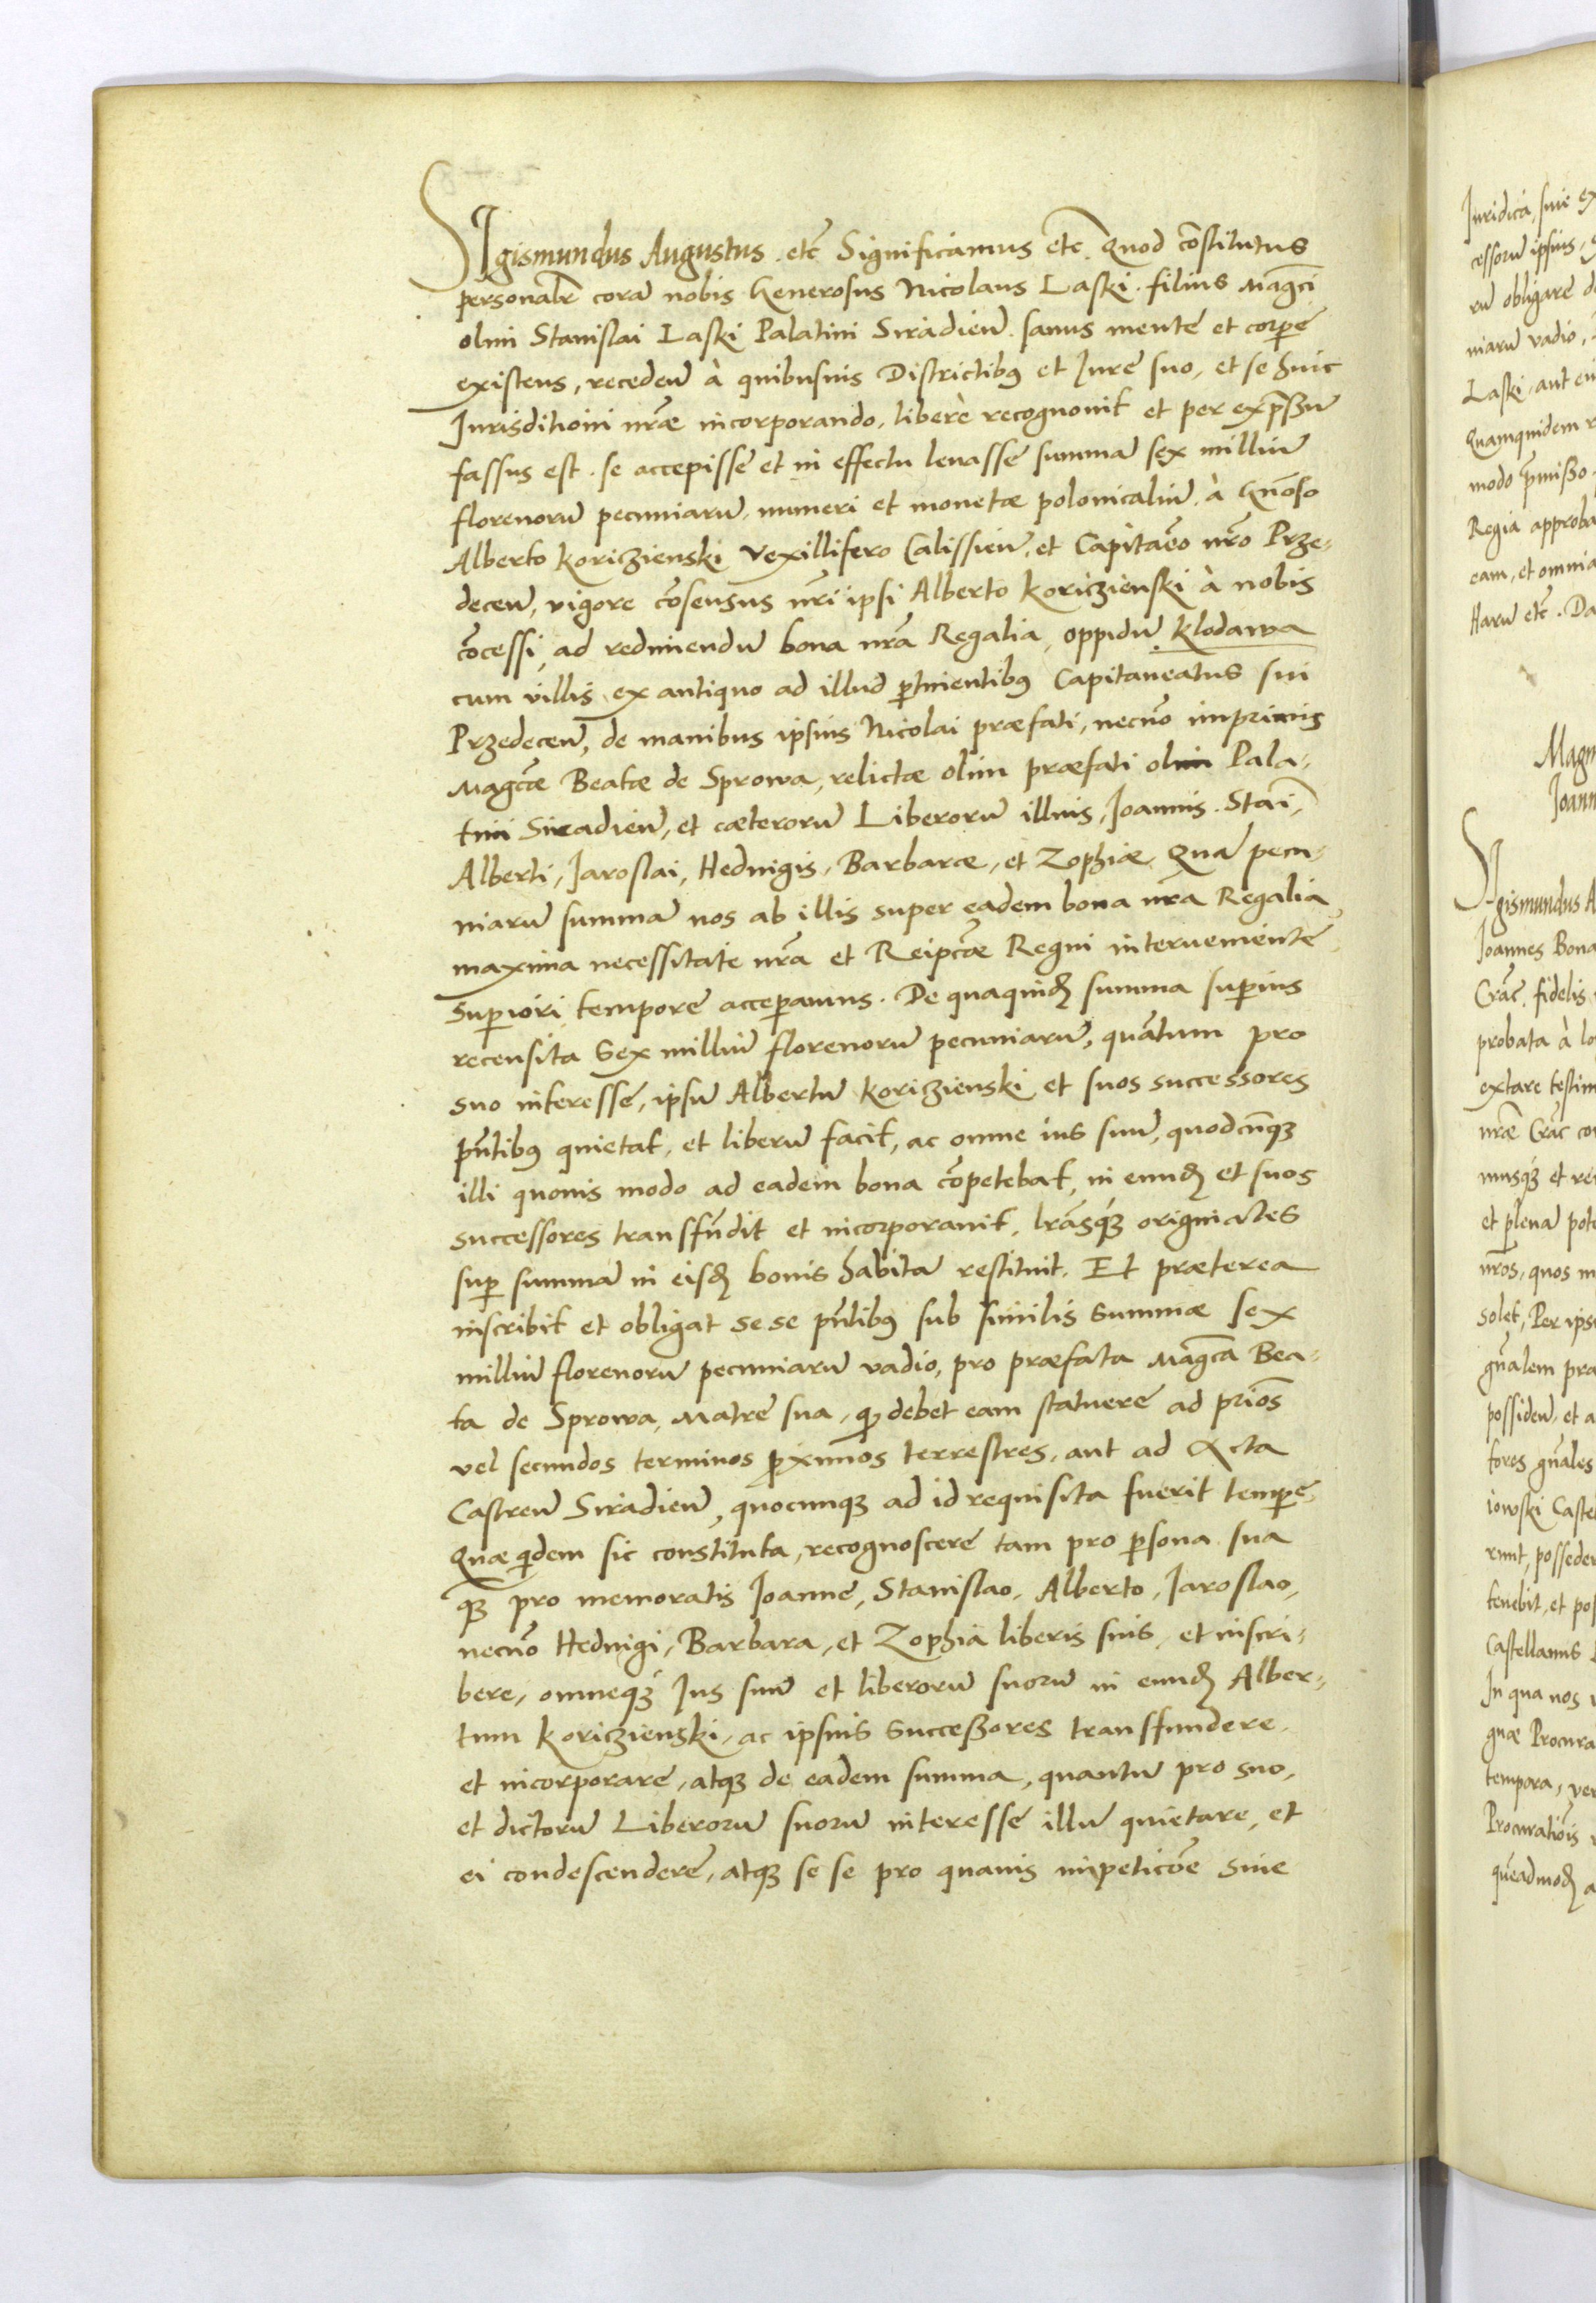 Sigismundus Augustus. etc̃ Significamus etc̃. Quod cõstitutus
personalr̃ corã nobis Generosus Nicolaus Laski. filius Mag̃ci
olim Stanislai Laski Palatini Siradieñ. sanus mente et corpe
existens, recedeñ à quibusuis Districtibꝰ et Jure suo, et se huic
Jurisditioni nr̃æ incorporando, liberè recognouit et per exp̃ßũ
fassus est. se accepisse et in effectu leuasse summã sex milliũ
florenorũ pecuniarũ, numeri et monetæ polonicaliũ, à Gñoso
Alberto Koriczienski Vexillifero Calissieñ, et Capitaẽo nr̃o Prze-
deceñ, vigore cõsensus nr̃i ipsi Alberto Koriczienski à nobis
cõcessi, ad redimendũ bona nr̃a Regalia, oppidũ Klodawa
cum villis ex antiquo ad illud ꝑtinentibꝰ Capitaneatus sui
Przedeceñ, de manibus ipsius Nicolai præfati, necnõ imprimis
Mag̃cæ Beatæ de Sprowa, relictæ olim præfati olim Pala-
tini Siradieñ, et cæterorũ Liberorũ illius, Joannis. Stañi,
Alberti, Jaroslai, Heduigis, Barbaræ, et Zophiæ. Quã pecu-
niarũ summã nos ab illis super eadem bona nr̃a Regalia
maxima necessitate nr̃a et Reipc̃æ Regni interueniente
Suꝑiori tempore acceꝑamus. De quaquidẽ summa suꝑius
recensita Sex milliũ florenorũ pecuniarũ, quãtum pro
suo interesse, ipsũ Albertũ Koriczienski et suos successores
pñtibꝰ quietat, et liberũ facit, ac omne ius suũ, quodcũqꝫ
illi quouis modo ad eadem bona cõpetebat, in eundẽ et suos
successores transfũdit et incorporauit, lr̃asqꝫ originales
suꝑ summã in eisdẽ bonis habitã restituit. Et præterea
inscribit et obligat se se pñtibꝰ sub similis Summæ sex
milliũ florenorũ pecuniarũ vadio, pro præfata Mag̃ca Bea-
ta de Sprowa, Matre sua, qꝫ debet eam statuere ad priõs
vel secundos terminos ꝓximos terrestres, aut ad Acta
Castreñ Siradieñ, quocunqꝫ ad id requisita fuerit tempe.
Quæ qidem sic constituta, recognoscere tam pro ꝑsona sua
qꝫ pro memoratis Joanne, Stanislao, Alberto, Jaroslao,
necnõ Heduigi, Barbara, et Zophia liberis suis, et inscri-
bere, omneqꝫ Jus suũ et liberorũ suorũ in eundẽ Alber-
tum Koriczienski, ac ipsius Succeßores transfundere
et incorporare, atqꝫ de eadem summa, quantũ pro suo,
et dictorũ Liberorũ suorũ interesse illũ quietare, et
ei condescendere, atqꝫ se se pro quauis impeticõe siue
Juridica, siue ex
cessorũ ipsius,
rũ obligare de
niarũ vadio,
Laski, aut eu
Quamquidem r
modo p̃mißo
Regia approba
eam, et omnia
Harũ etc̃. Da
Magn
Joann
Sigismundus A
Joannes Bona
Crac̃. fidelis
probata à lo
extare testim
nr̃æ Crac̃ co
musqꝫ et re
et plenã pote
nr̃os, quos in
solet, Per ips
gñalem pra
possideñ, et a
tores gñales
iowski Caste
runt, posseder
tenebit, et pos
Castellanus
In qua nos
guæ Procura
tempora, ver
Procuratiõis
quẽadmodẽ a